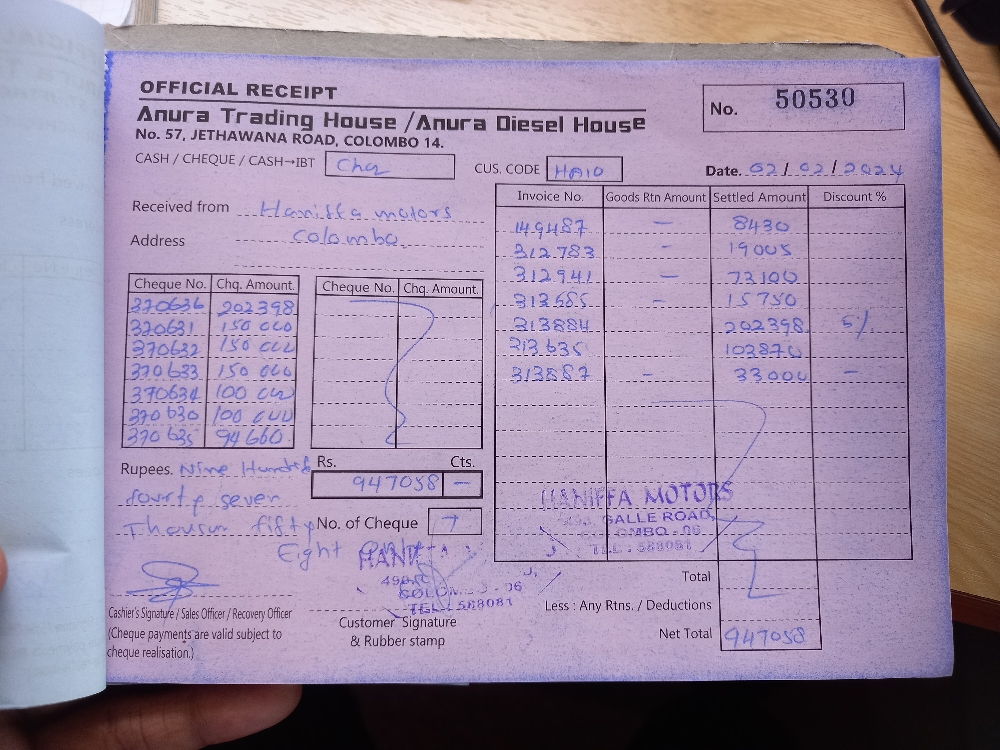 OFFICIAL RECEIPT
No. 50530
Anura Trading House / Anura Diesel House
No. 57, JETHAWANA ROAD, COLOMBO 14.
CASH / CHEQUE / CASH→IBT Chq CUS. CODE HA10 Date. 02/02/2024
Received from Haniffa motors
Address Colombo
Invoice No. Goods Rtn Amount Settled Amount Discount %
149487 — 8430
312783 — 19005
312941 — 73100
313585 — 15750
313884 202398 5%
313635 103870
313887 – 33000 –
Cheque No. Chq. Amount. Cheque No. Chq. Amount.
370636 202398
370631 150 000
370632 150 000
370633 150 000
370634 100 000
370630 100 000
370635 94660
Rupees. Nine Hundred
fourty seven
Thousun fifty
Eight only
Rs. Cts.
947058 —
No. of Cheque 7
HANIFFA MOTORS
GALLE ROAD,
COLOMBO - 06
TEL : 588081
HANIFFA
COLOMBO - 06
TEL : 588081
Total
Less : Any Rtns. / Deductions
Net Total 947058
Cashier's Signature / Sales Officer / Recovery Officer
(Cheque payments are valid subject to
cheque realisation.)
Customer Signature
& Rubber stamp